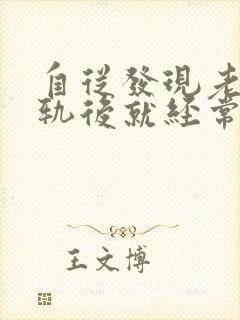 自從發現老
軌後就經常
王文博